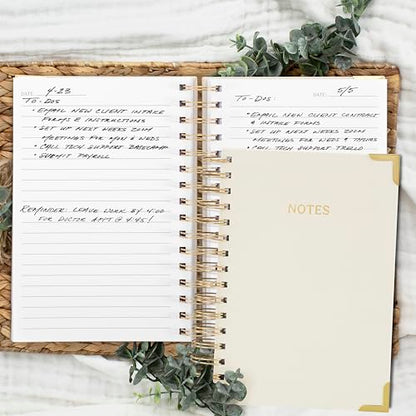 DATE 4-28
TO-DOS
• EMAIL NEW CLIENT INTAKE
FORMS & INSTRUCTIONS
• SET UP NEXT WEEKS ZOOM
MEETINGS FOR MON & WEDS
• CALL TECH SUPPORT BASECAMP
• SUBMIT PAYROLL
REMINDER: LEAVE WORK BY 4:00
FOR DOCTOR APPT @ 4:45!
DATE 5/5
TO-DOS:
• EMAIL NEW CLIENT CONTRACT
& INTAKE FORMS
• SET UP NEW WEEKS ZOOM
MEETINGS FOR WEDS & THURS
• CALL TECH SUPPORT TRELLO
NOTES